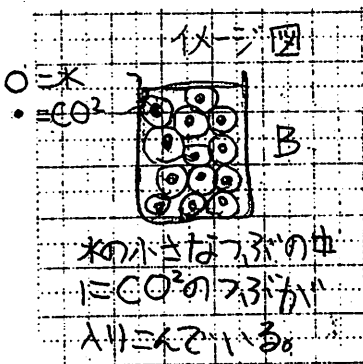 イメージ図
○=水
•=CO²
B
水の小さなつぶの中
にCO²のつぶが
入りこんでいる。